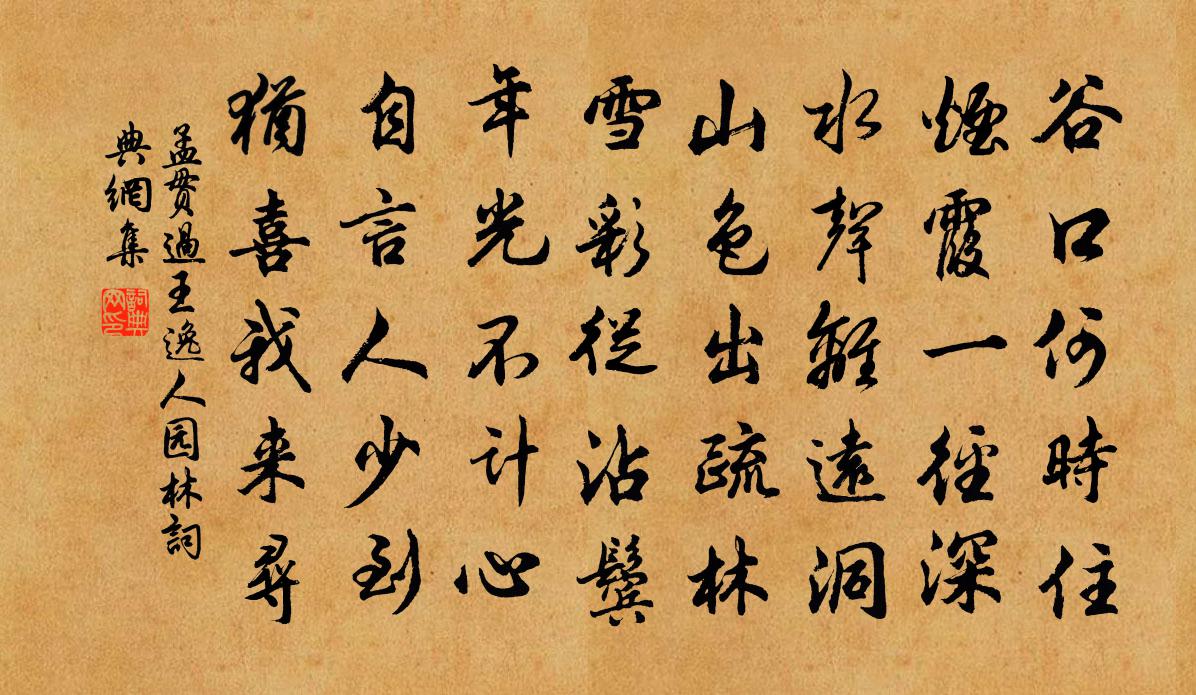 谷口何時住
煙霞一徑深
水聲離遠洞
山色出疏林
雪彩從沾鬢
年光不計心
自言人少到
猶喜我来尋
孟貫過王逸人园林詞
典網集
詞典
网印